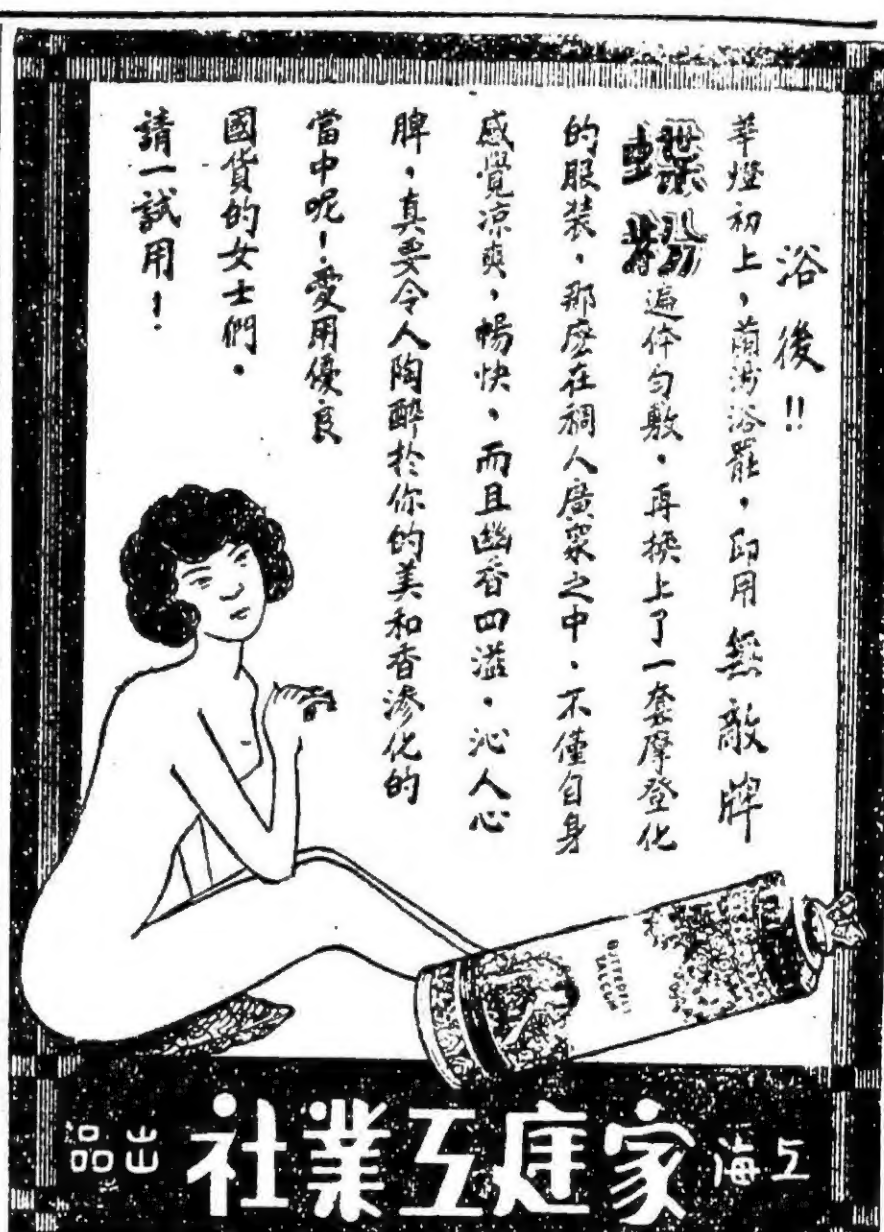 浴後!!
華燈初上，蘭湯浴罷，即用無敵牌
蝶粉遍体勻敷，再換上了一套摩登化
的服装，那麽在稠人廣衆之中，不僅自身
感覺凉爽，暢快，而且幽香四溢，沁人心
脾，真要令人陶醉於你的美和香滲化的
當中呢！愛用優良
國貨的女士們，
請一試用！
BUTTERFLY
TALCUM
上海
家庭工業社
出品